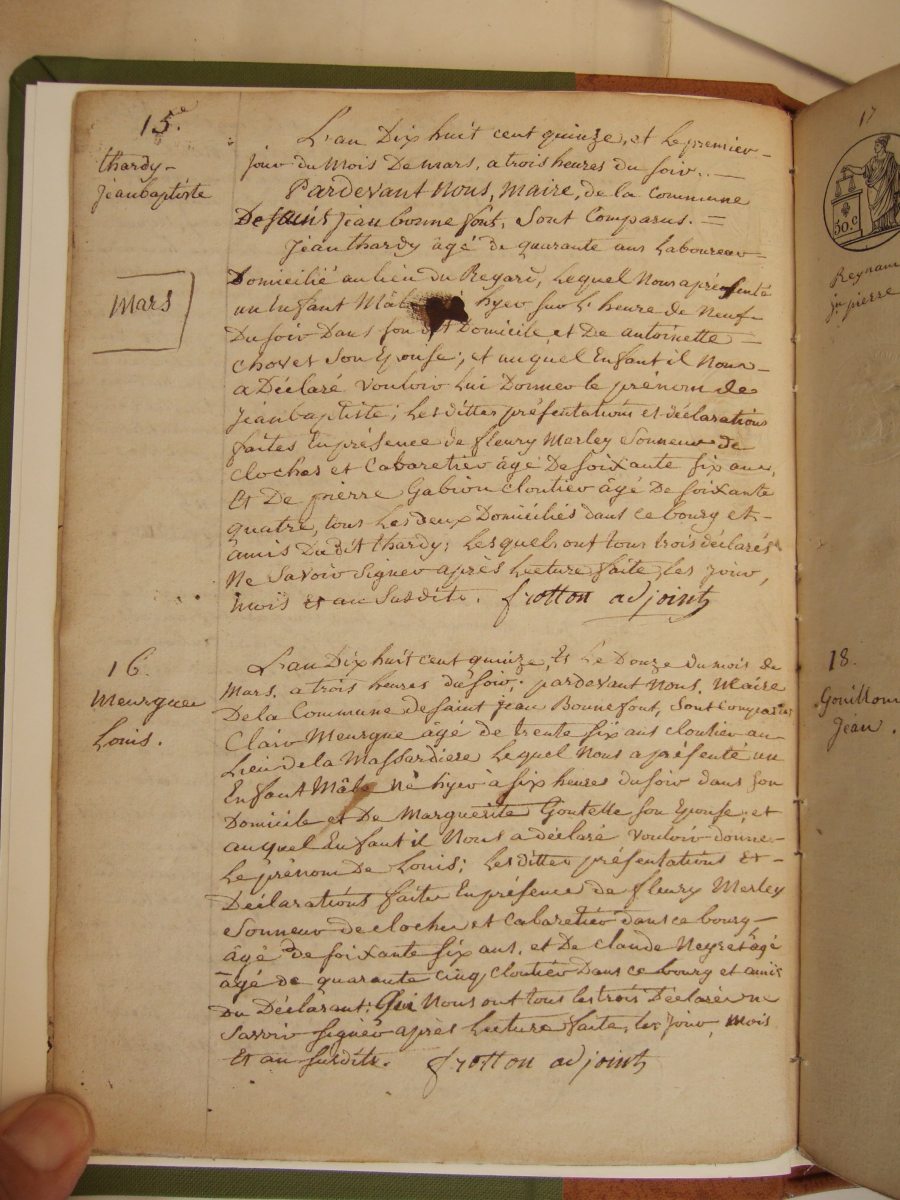 15.e
thardy
jeanbaptiste
Mars
L'an Dix huit cent quinze, et Le premier
jour du Mois De mars, a trois heures du soir.
Pardevant Nous, Maire, de la Commune
De saint jean bonnefont, sont Comparus.
jean thardy âgé de quarante ans Laboureur
Domicilié au lieu du Regard, Lequel Nous a présenté
un Enfant Mâle hyer sur L'heure de Neuf
Du soir Dans son dit Domicile, et De antoinette
chovet son Epouse; et auquel Enfant il Nous
a Déclaré vouloir Lui Donner le prénom de
jeanbaptiste; Les dittes présentations et déclarations
faites En présence de fleury Merley Sonneur de
cloches et Cabaretier âgé De soixante six ans,
Et De pierre Gabion cloutier âgé De soixante
quatre, tous Les deux Domiciliés dans ce bourg et
amis Du dit thardy; Lesquels ont tous trois déclarés
Ne Savoir Signer après Lecture faite Les jour,
mois et an Susdits. frotton adjoint
16.
Meurgue
Louis.
L'an Dix huit cent quinze, Et Le Douze du mois de
Mars, a trois heures du soir; pardevant Nous, Maire
De la Commune de Saint jean Bonnefont, Sont Comparus
Clair Meurgue âgé de trente six ans cloutier au
Lieu de la Massardiere Lequel Nous a présenté un
Enfant Mâle Né hyer à six heures du soir dans son
Domicile et De Marguerite Goutelle son Epouse; et
auquel Enfant il Nous a déclaré vouloir donner
Le prénom De Louis; Les dittes présentations Et
Déclarations faites En présence de fleury Merley
Sonneur de cloches et Cabaretier dans ce bourg
âgé de soixante six ans, et De Claude Neyret âgé
âgé de quarante cinq cloutier Dans ce bourg et amis
Du Déclarant; Qui Nous ont tous les trois Déclarés ne
Savoir signer après Lecture faite, les jour, mois
Et an susdits. frotton adjoint
17
30.C
Reynau
jn pierre
18.
Gouillou
Jean.